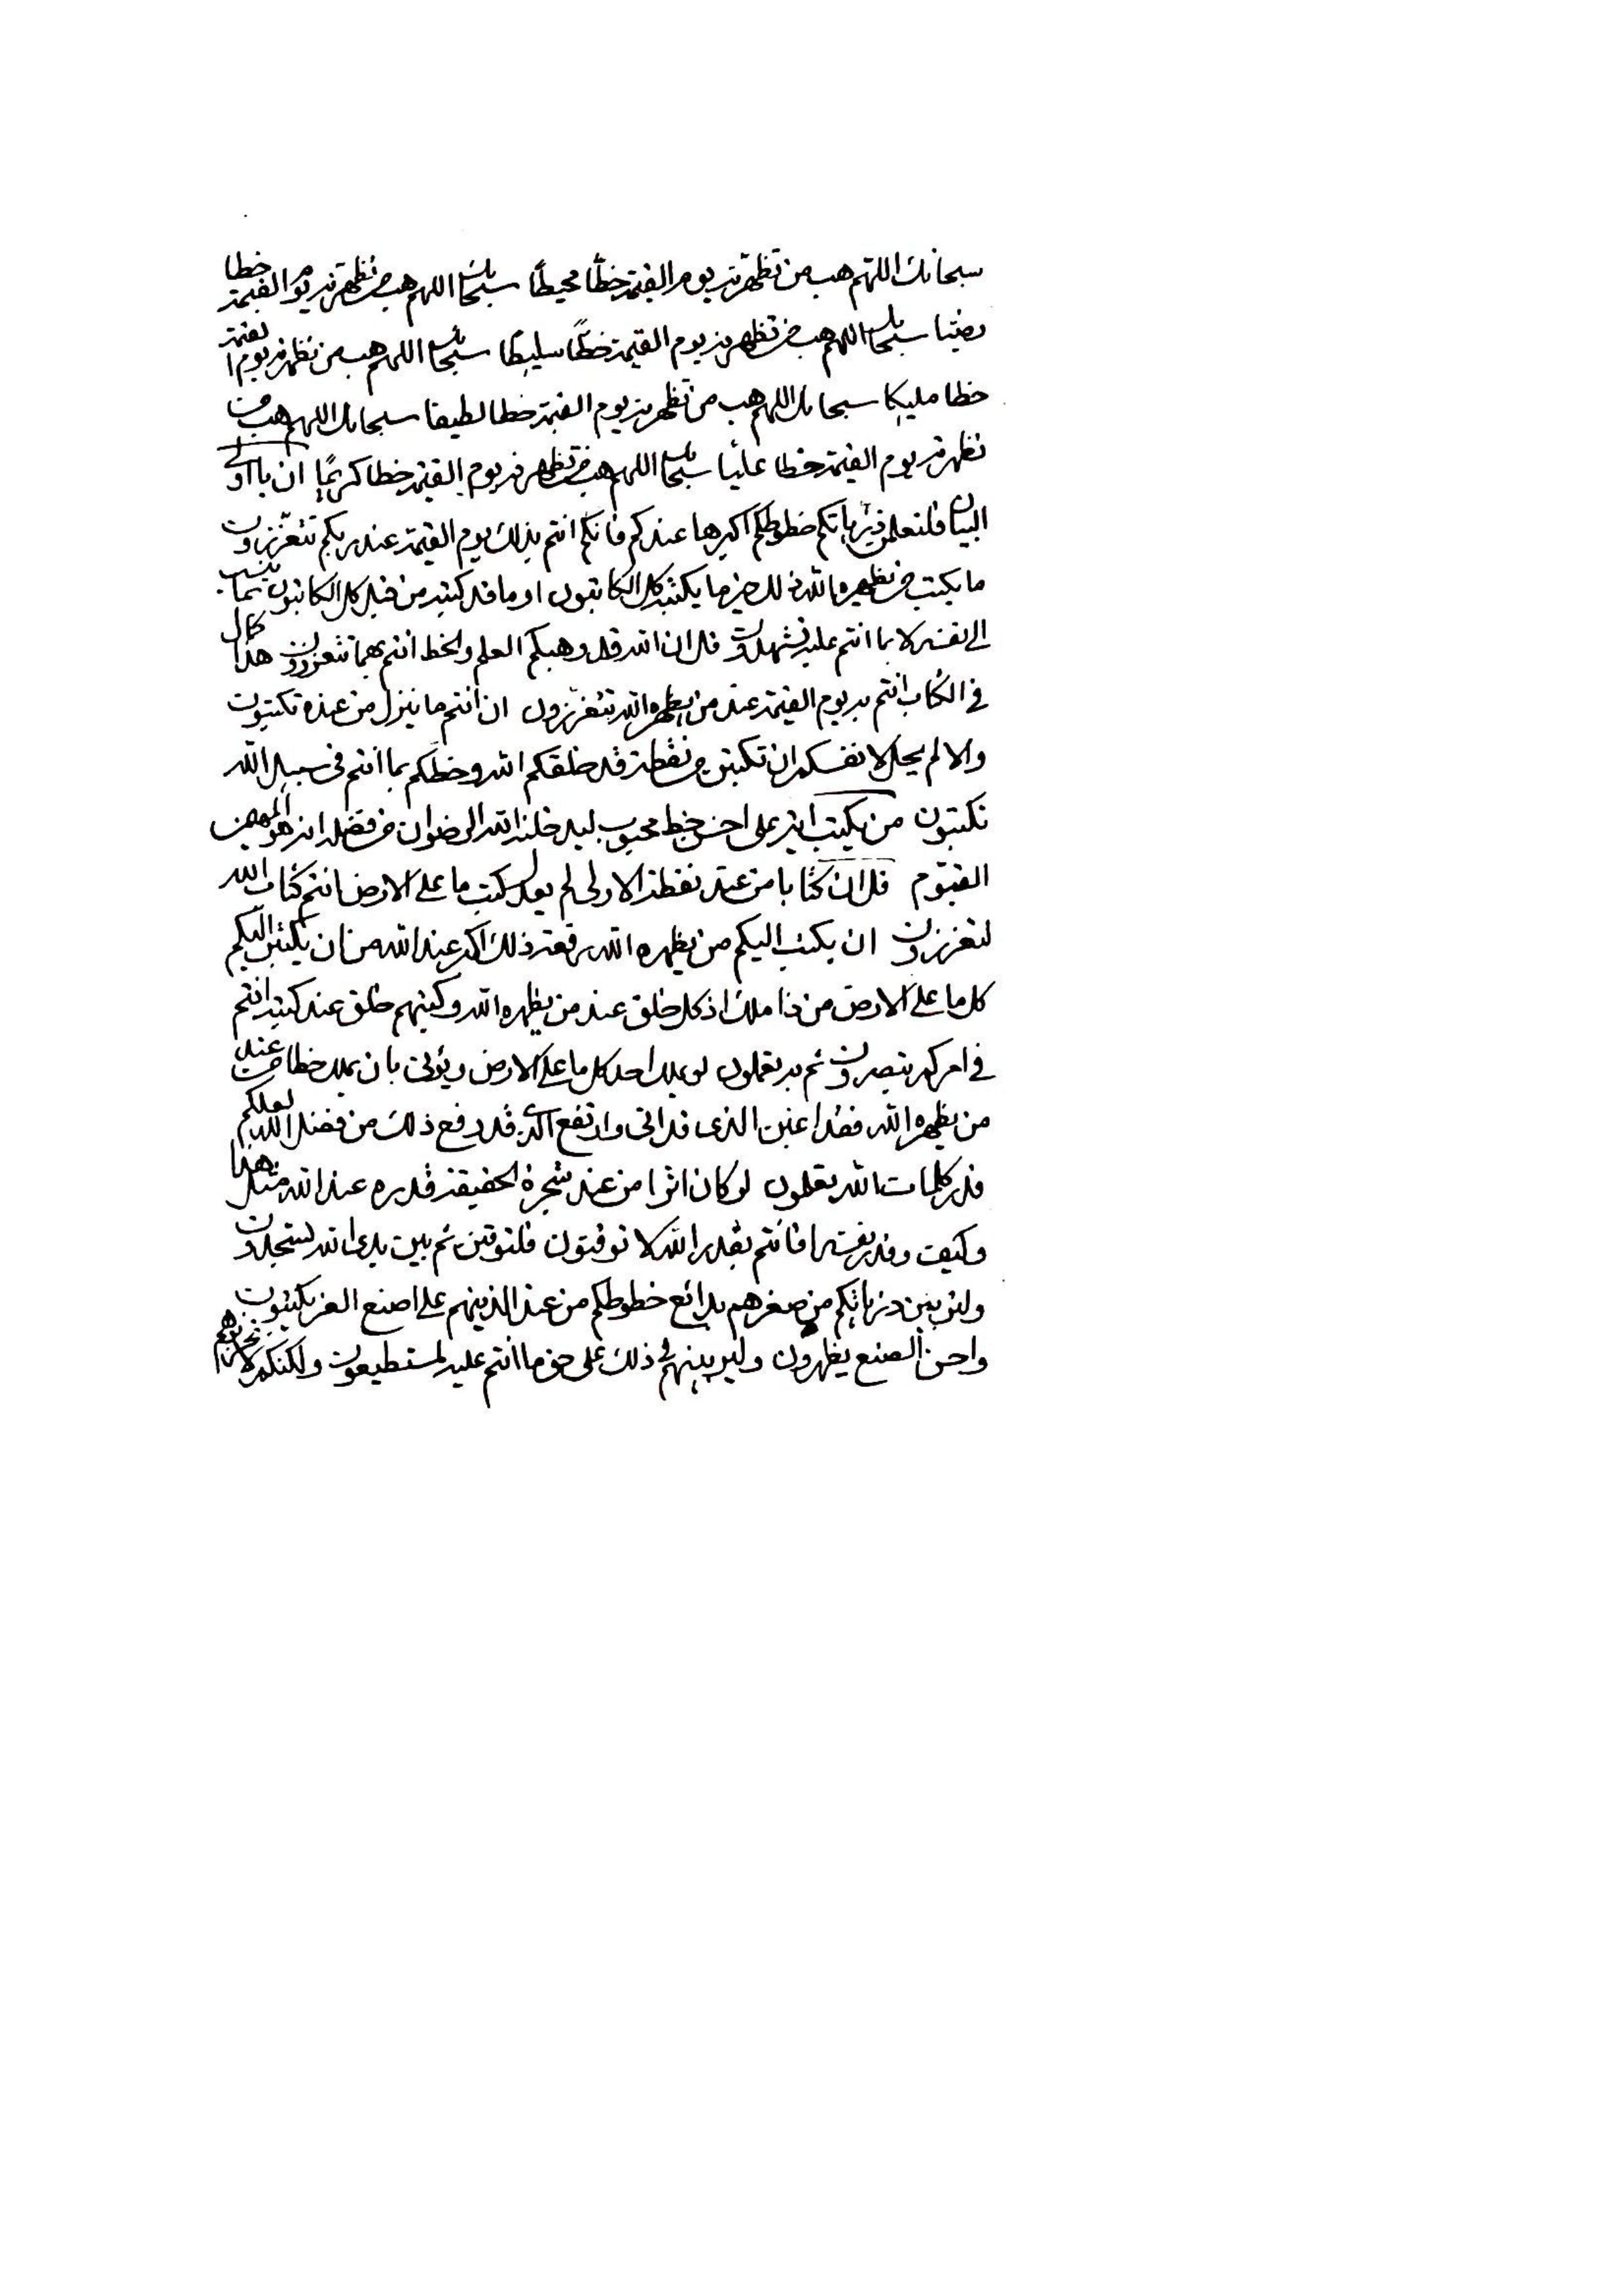 سبحانك اللهم هب من تظهرنه يوم القيمة خطا محيطا سبحانك اللهم هب من تظهرنه يوم القيمة خطا
رضيا سبحانك اللهم هب من تظهرنه يوم القيمة خطا سليطا سبحانك اللهم هب من تظهرنه يوم القيمة
خطا مليكا سبحانك اللهم هب من تظهرنه يوم القيمة خطا لطيفا سبحانك اللهم هب من
تظهرنه يوم القيمة خطا عليا سبحانك اللهم هب من تظهرنه يوم القيمة خطا كريما ان يا اولي
البيان فلتعلمن ذرياتكم خطوطكم اكبرها عندكم فانكم انتم بذلك يوم القيمة عند ربكم تتعززون
ما يكتب من يظهره الله ذلك خير ما يكتبه كل الكاتبون او ما قد كتبه من قبل كل الكاتبون بما ينسب
الى نفسه لا بما انتم عليه تشهدون قل ان الله قد وهبكم العلم والخط انتم بهما تتعززون هذا كمال
في الكتاب انتم به يوم القيمة عند من يظهره الله تتعززون ان انتم ما ينزل من عنده تكتبون
والا لم يحل لانفسكم ان تكتبن من نقطة قد خلقكم الله وخطكم بما انتم في سبيل الله
تكتبون من يكتب اثر على احسن خط محبوب ليدخلنه الله الرضوان من فضله انه هو المهيمن
القيوم قل ان كتابا من عند نقطة الاولى لم يعدل كتب ما على الارض انتم كتاب الله
لتعززون ان يكتب اليكم من يظهره الله رقعة ذلك اكبر عند الله من ان يكتبن اليكم
كل ما على الارض من ذا ملك اذ كل خلق عند من يظهره الله وكتبهم خلق عند كتبه انتم
في امركم تبصرون ثم به تعملون لو يملك احد كل ما على الارض ويؤتى بان يملك خطا من عند
من يظهره الله فقد اغبن الذي قد اتى وارتفع الذي قد رفع ذلك من فضل الله لعلكم
قدر كلمات الله تعلمون لو كان اثرا من عند شجرة الحقيقة قدره عند الله مثل هذا
وكيف وقدر نفسه افانتم بقدر الله لا توقنون فلتوقنن ثم بين يدي الله لتسجدون
ولتربين ذرياتكم من صغرهم بدائع خطوطكم من عند الذينهم على اصنع العز يكتبون
واحسن الصنع يظهرون ولتربينهم في ذلك على حق ما انتم عليه لمستطيعون ولكنكم لا تحزنوهم